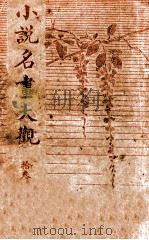 小說名畫大觀
拾叁
mtoou.info